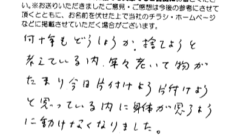 い。※お送りいただきましたご意見・ご感想は今後の参考にさせて
頂くとともに、お名前を伏せた上で当社のチラシ・ホームページ
などに掲載させていただく場合がございます。
何十年もどうしようか、捨てようと
考えている内、年も老いて物が
たまり今日片付けよう片付けよう
と思っている内に身体が思うよう
に動けなくなりました。